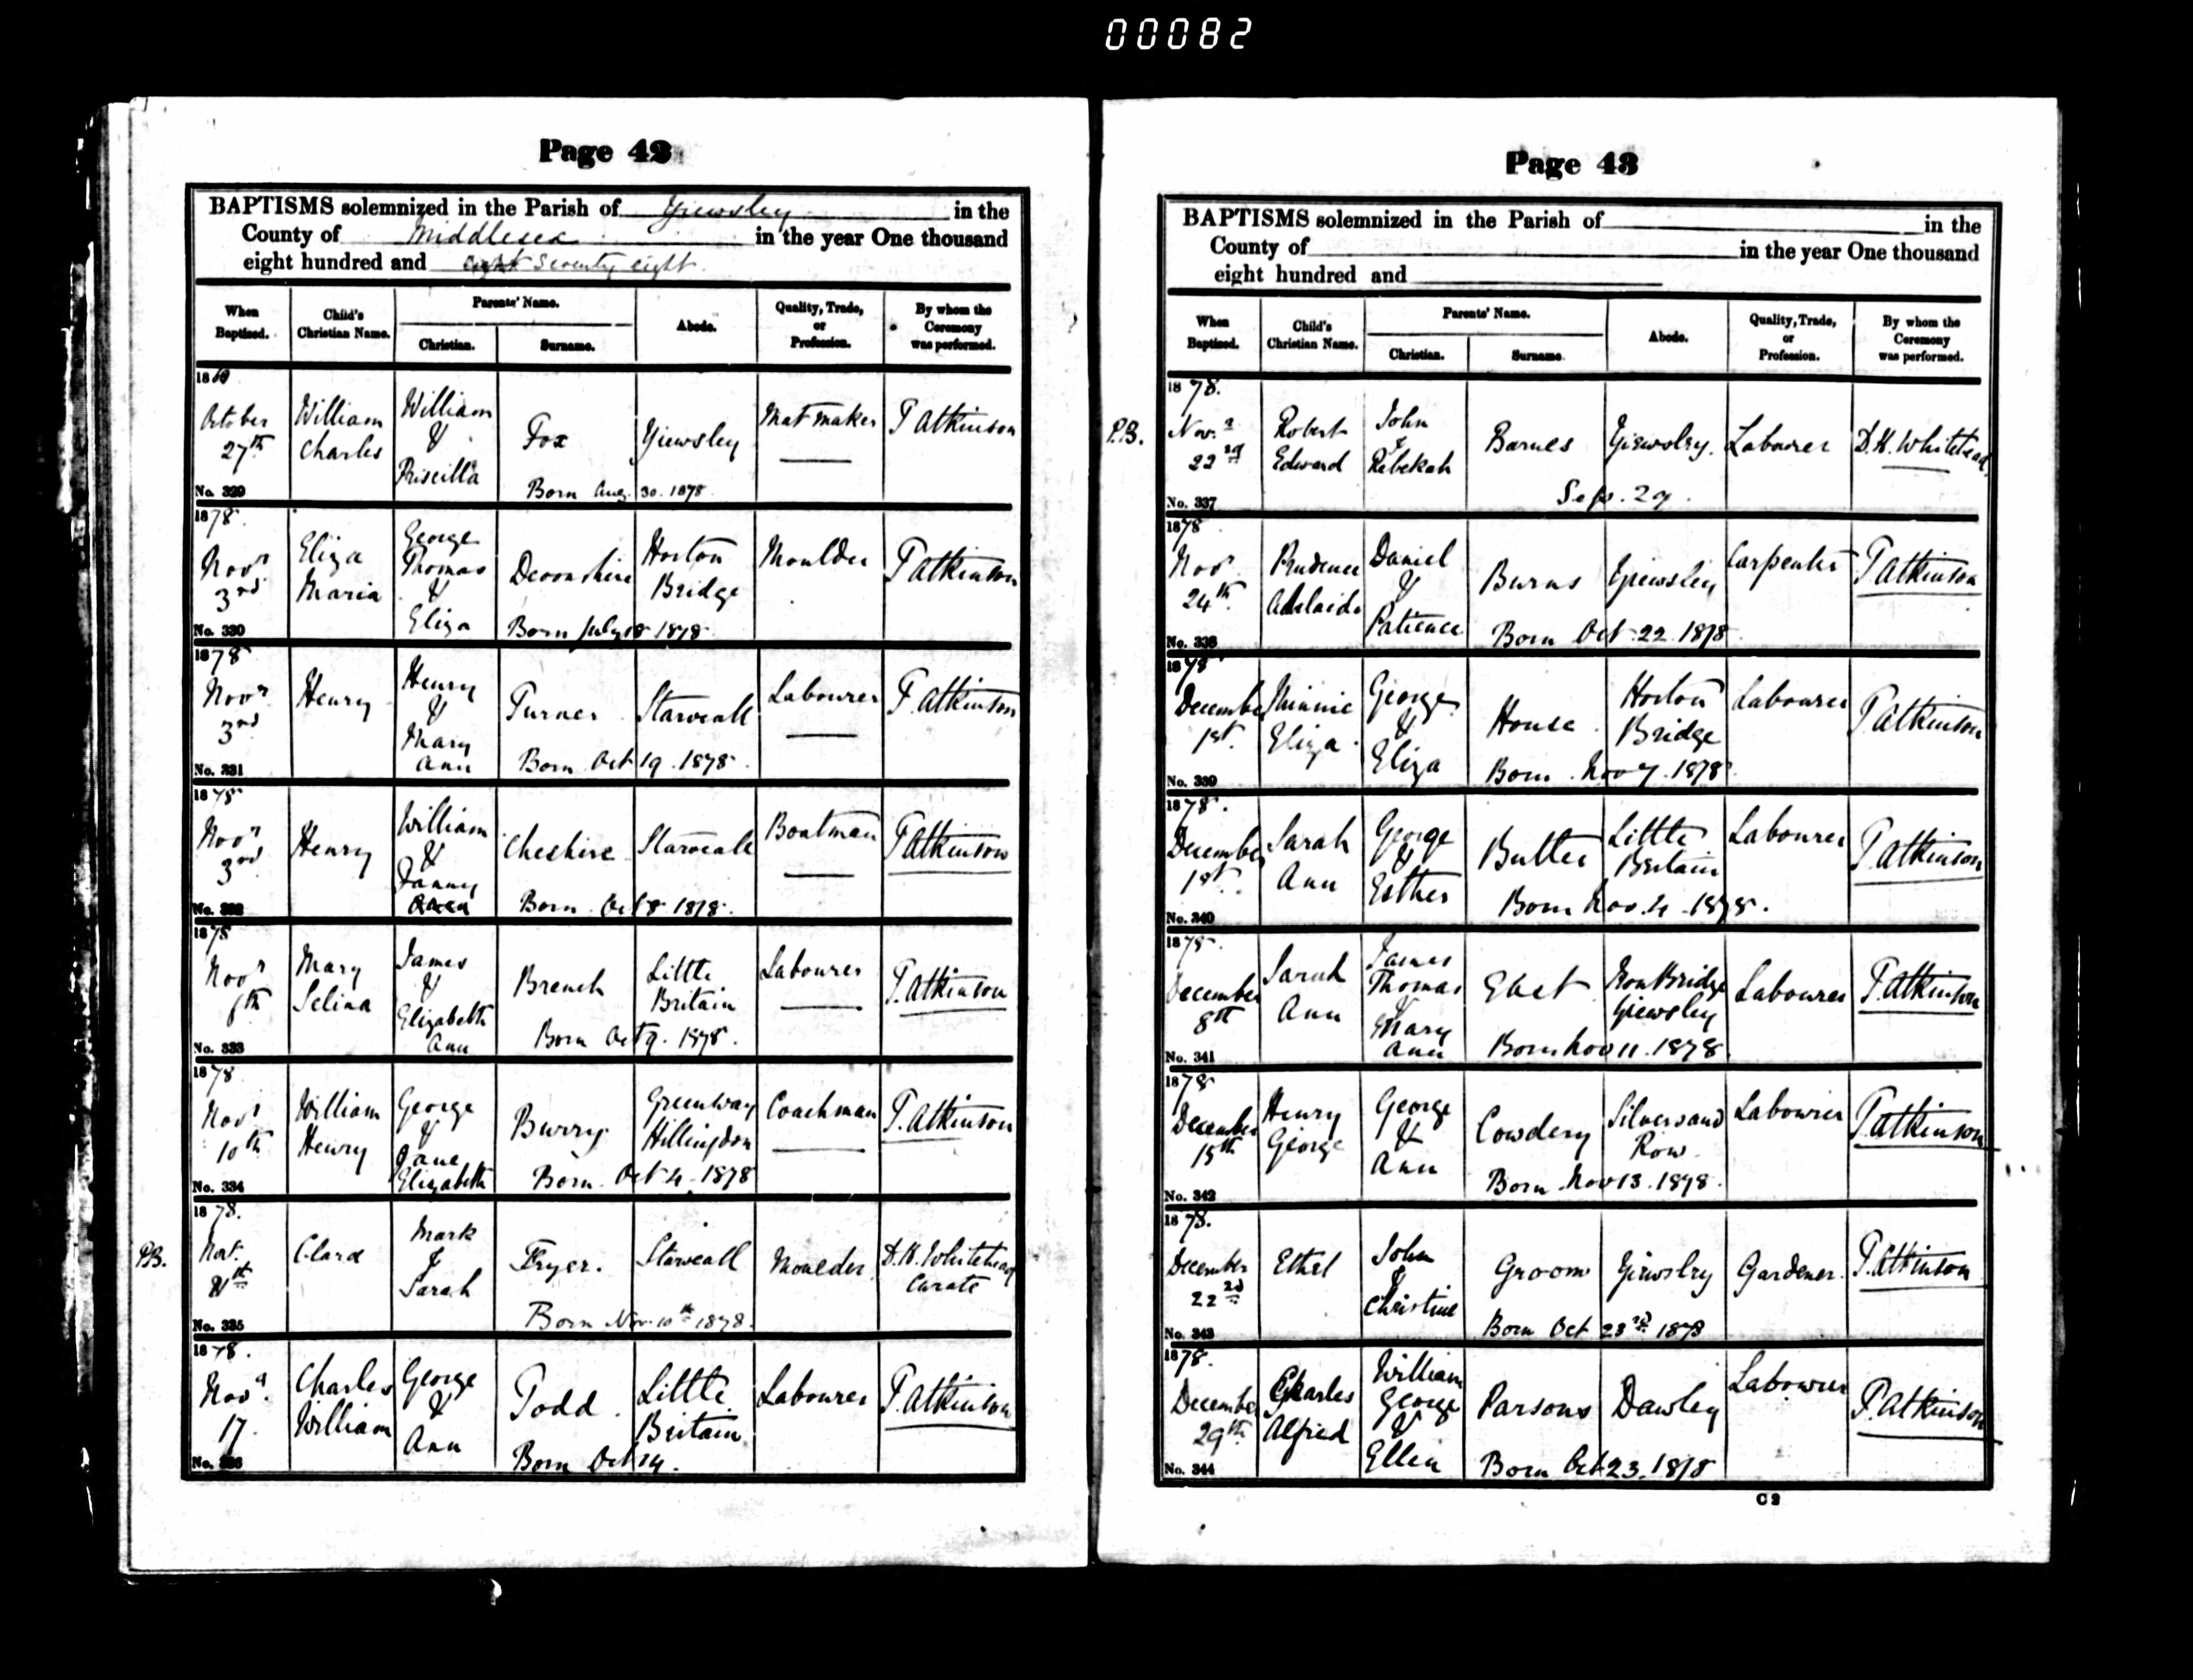 00082
Page 42
BAPTISMS solemnized in the Parish of Yiewsley in the
County of Middlesex in the year One thousand
eight hundred and seventy eight.
When Baptized. Child's Christian Name. Parents' Name. Christian. Surname. Abode. Quality, Trade, or Profession. By whom the Ceremony was performed.
18
October 27th William Charles William & Priscilla Fox Yiewsley Mat maker T Atkinson
No. 329 Born Aug. 30. 1878.
1878.
Novr 3rd Eliza Maria George Thomas & Eliza Devonshire Horton Bridge Moulder T Atkinson
No. 330 Born July 18 1878.
1878
Novr 3rd Henry Henry & Mary Ann Turner Starveall Labourer T. Atkinson
No. 331 Born Oct 19. 1878.
1878
Novr 3rd Henry William & Fanny Cheshire Starveall Boatman T Atkinson
No. 332 Born Oct 8 1878.
1878
Novr Mary Selina James & Elizabeth Ann Branch Little Britain Labourer T. Atkinson
No. 333 Born Oct 9. 1878.
1878
Novr 10th William Henry George & Jane Elizabeth Burry Greenway Hillingdon Coachman T. Atkinson
No. 334 Born Oct 4. 1878
1878.
P.B. Novr. Clara Mark & Sarah Fryer. Starveall Moulder D.H. Whitehead Curate
No. 335 Born Nov. 10th 1878.
1878.
Novr 17. Charles William George & Ann Todd. Little Britain Labourer T. Atkinson
No. 336 Born Oct 14.
Page 43
BAPTISMS solemnized in the Parish of in the
County of in the year One thousand
eight hundred and
When Baptized. Child's Christian Name. Parents' Name. Christian. Surname. Abode. Quality, Trade, or Profession. By whom the Ceremony was performed.
1878.
P.B. Novr. 22nd Robert Edward John & Rebekah Barnes Yiewsley. Labourer D.H. Whitehead.
No. 337 Sep. 29.
1878
Novr 24th Prudence Adelaide Daniel & Patience Burns Yiewsley Carpenter T Atkinson
No. 338 Born Oct. 22. 1878
1878
December 1st. Minnie Eliza. George & Eliza House. Horton Bridge Labourer T Atkinson
No. 339 Born. Nov 7. 1878.
1878.
December 1st. Sarah Ann George & Esther Butler Little Britain Labourer T Atkinson
No. 340 Born Nov. 4. 1878.
1878.
December 8th Sarah Ann James Thomas & Mary Ann East Iron Bridge Yiewsley Labourer T. Atkinson
No. 341 Born Nov 11. 1878.
1878
December 15th Henry George George & Ann Cowdery Silversand Row Labourer T Atkinson
No. 342 Born Nov 13. 1878.
1878.
December 22nd Ethel John & Christine Groom Yiewsley Gardener. T. Atkinson
No. 343 Born Oct 23rd. 1878
1878.
December 29th. Charles Alfred William George & Ellen Parsons Dawley Labourer T. Atkinson
No. 344 Born Oct 23. 1878
C 2